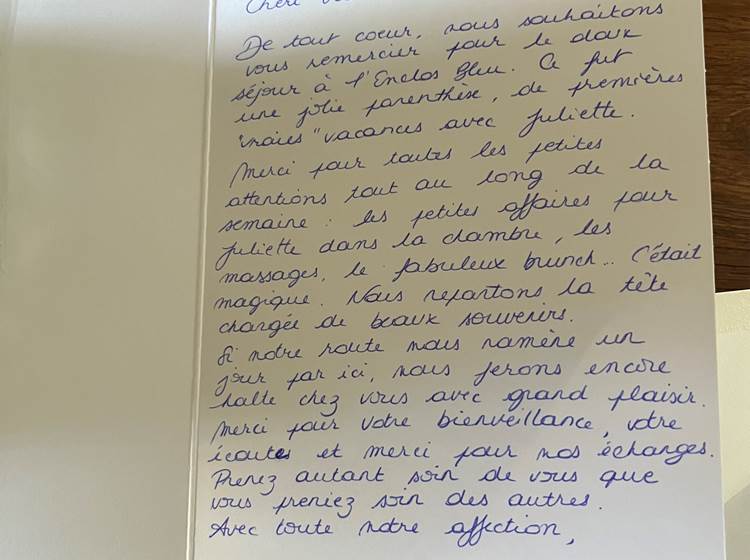 De tout coeur, nous souhaitons
vous remercier pour le doux
séjour à l'Enclos Bleu. Ce fut
une jolie parenthèse, de premières
"vraies" vacances avec Juliette.
Merci pour toutes les petites
attentions tout au long de la
semaine : les petites affaires pour
Juliette dans la chambre, les
massages, le fabuleux brunch.. C'était
magique. Nous repartons la tête
chargée de beaux souvenirs.
Si notre route nous ramène un
jour par ici, nous ferons encore
halte chez vous avec grand plaisir.
Merci pour votre bienveillance, votre
écoutes et merci pour nos échanges.
Prenez autant soin de vous que
vous preniez soin des autres.
Avec toute notre affection,